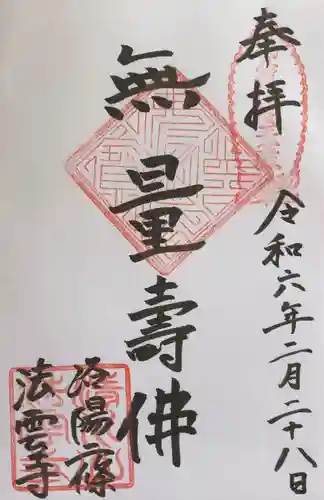 奉拝
令和六年二月二十八日
無量壽佛
洛陽篠
法雲寺